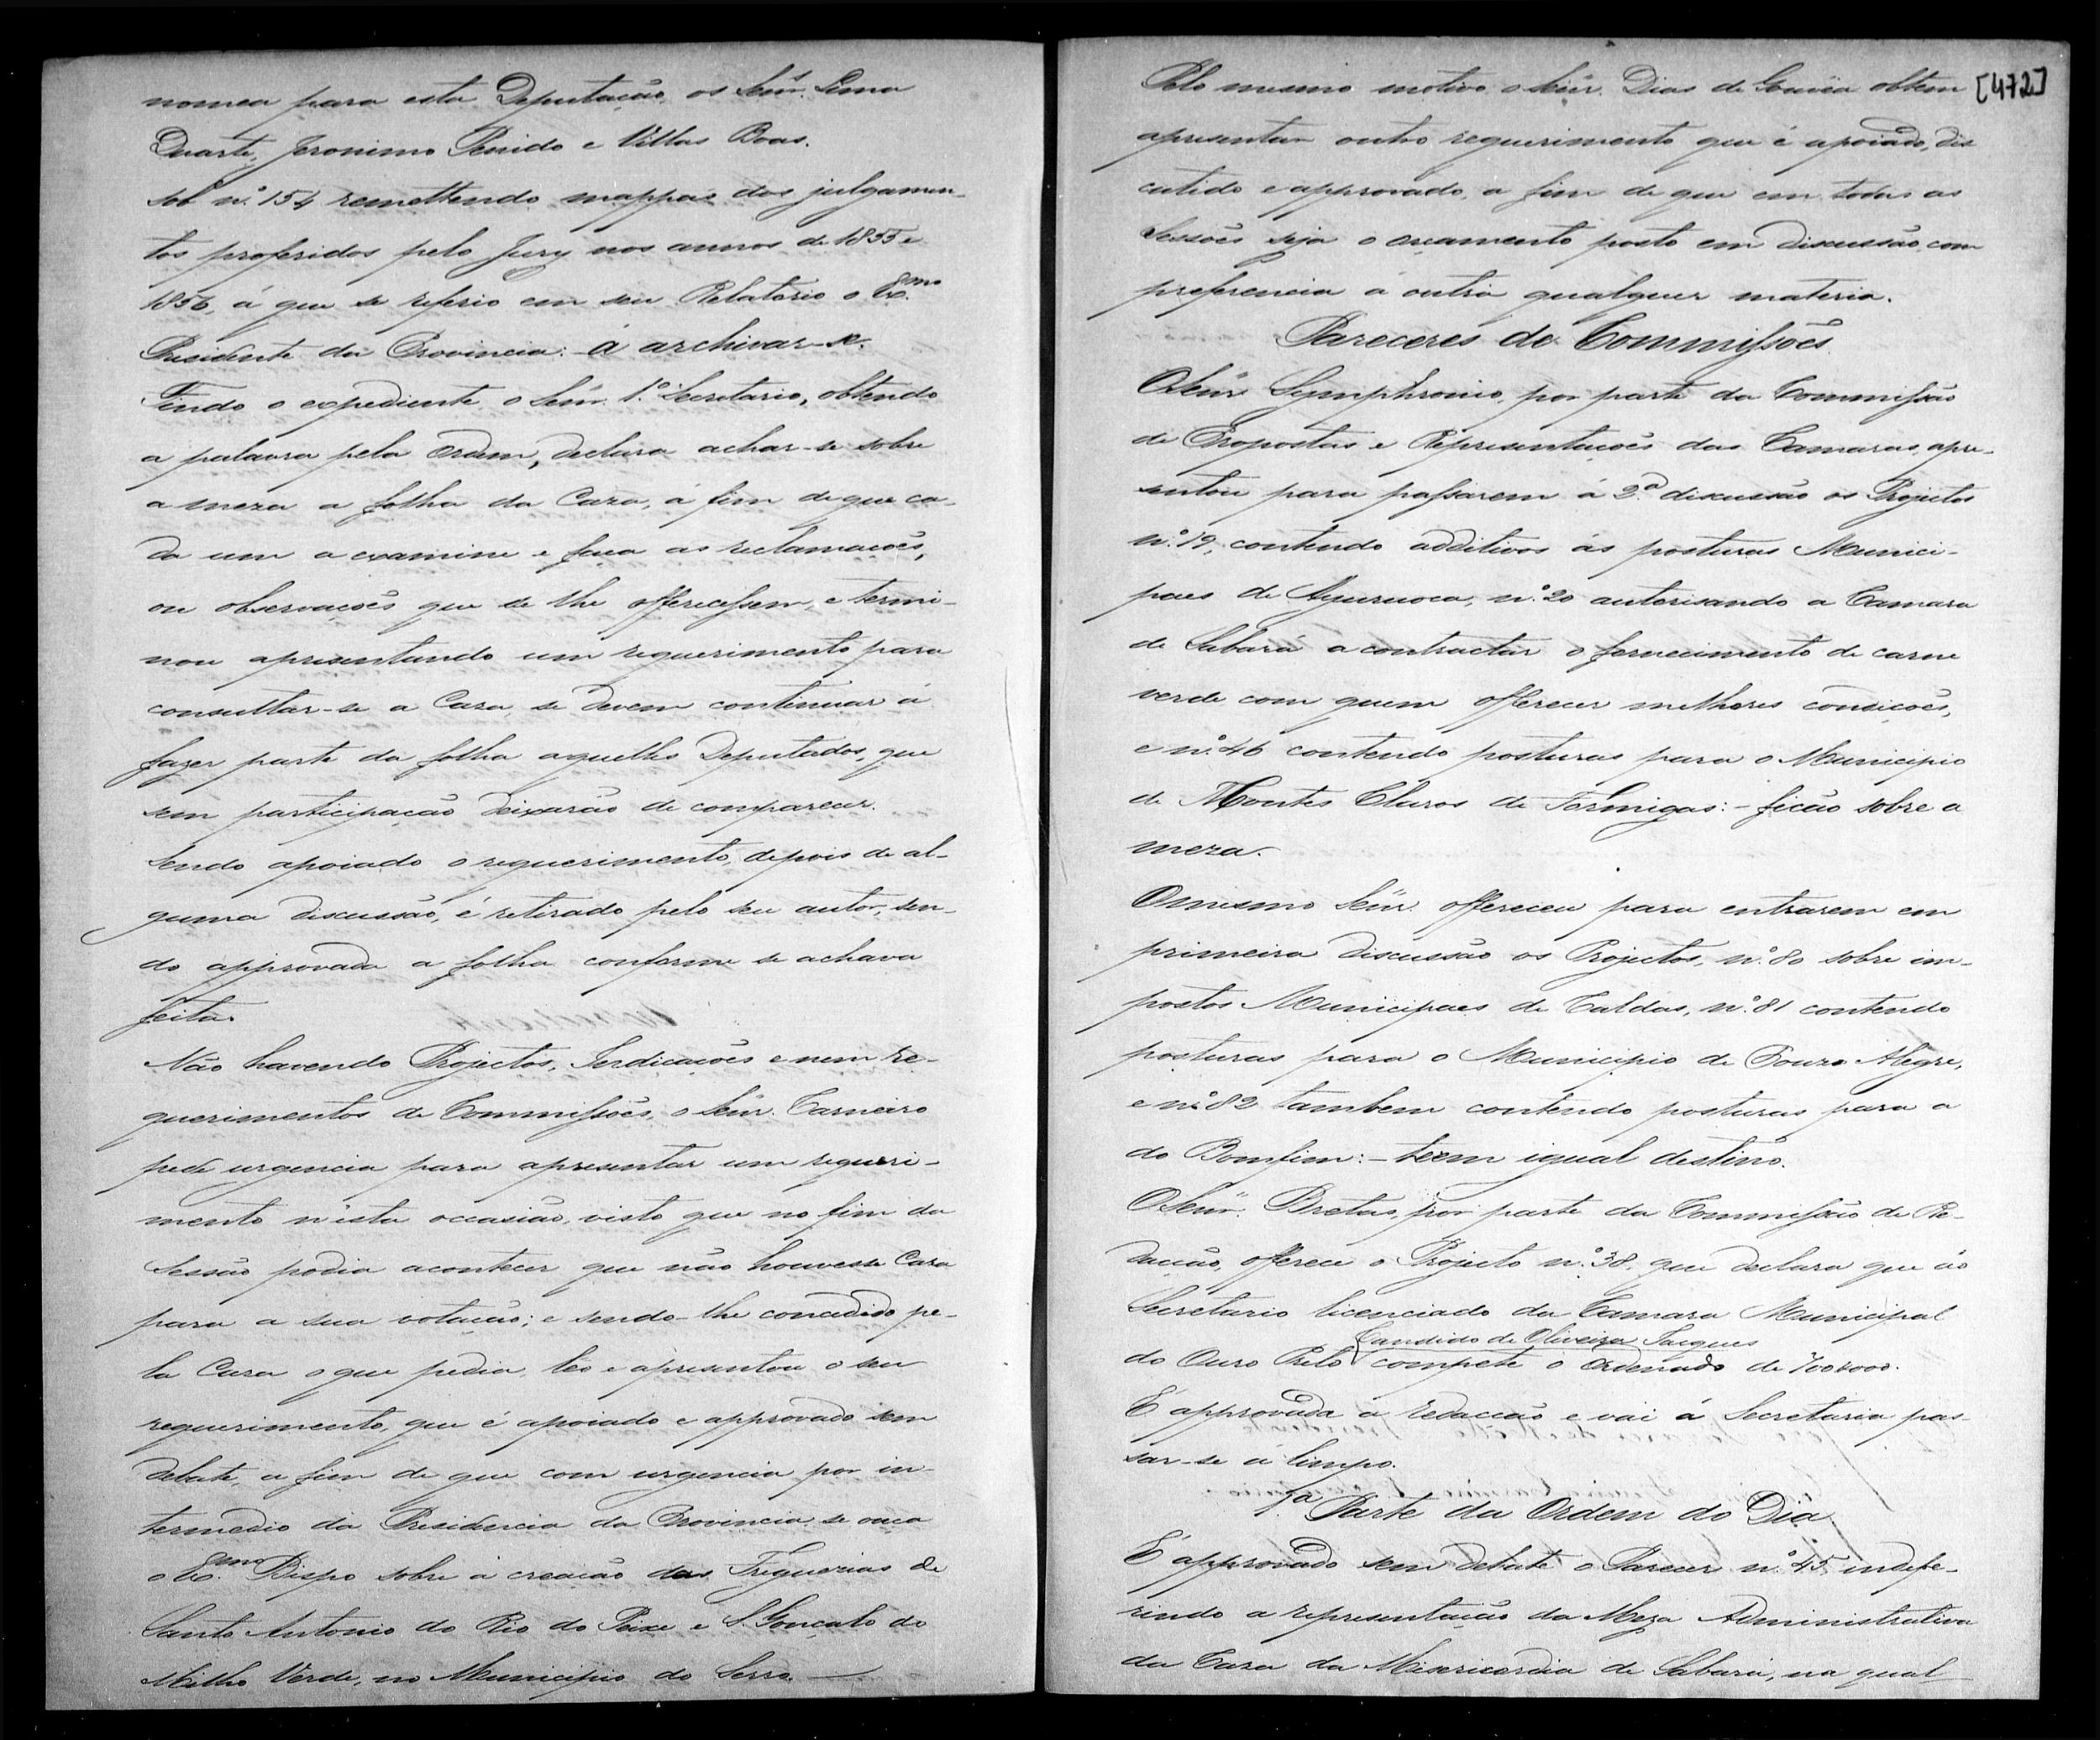 nomea para esta Deputação os Senrs. Lima
Duarte, Jeronimo Penido e Villas Boas.
sob nº. 154 remettendo mappas dos julgamen-
tos proferidos pelo Jury nos annos de 1855 e
1856, á que se referio em seu Relatorio o Exmo.
Presidente da Provincia: - á archivar-se.
Findo o expediente o Senr. 1º. Secretario, obtendo
a palavra pela ordem, declara achar-se sobre
a meza a folha da Caza, á fim de que ca-
da um a examine e faça as reclamações,
ou observações que se lhe offerecessem, e termi-
nou apresentando um requerimento para
consultar-se a Caza, se devem continuar á
fazer parte da folha aquelles Deputados, que
sem participação deixarão de comparecer.
Sendo apoiado o requerimento, depois de al-
guma discussão, é retirado pelo seu autor, sen-
do approvada a folha conforme se achava
feita.
Não havendo Projectos, Indicações e nem re-
querimentos de Commissões, o Senr. Carneiro
pede urgencia para apresentar um requeri-
mento n'esta occasião, visto que no fim da
Sessão podia acontecer que não houvesse Caza
para a sua votação; e sendo-lhe concedido pe-
la Caza o que pedia, leo e apresentou o seu
requerimento, que é apoiado e approvado sem
debate, a fim de que com urgencia por in-
termedio da Presidencia da Provincia se ouça
o Exmo. Bispo sobre a creação das Freguezias de
Santo Antonio do Rio do Peixe e S. Gonçalo do
Milho Verde, no Municipio do Serro.
[472]
Pelo mesmo motivo o Senr. Dias de Gouvêa obtem
apresentar outro requerimento que é apoiado, dis
cutido e approvado, a fim de que em todas as
Sessões seja o orçamento posto em discussão, com
preferencia a outra qualquer materia.
Pareceres de Commissões
O Senr. Symphronio, por parte da Commissão
de Propostas e Representações das Camaras, apre-
sentou para passarem á 2ª. discussão os Projectos
nº. 19, contendo additivos ás posturas Munici-
paes de Ayuruoca, nº. 20 autorisando a Camara
de Sabará a contractar o fornecimento de carne
verde com quem offerecer melhores condições,
e nº. 46 contendo posturas para o Municipio
de Montes Claros de Formigas: - ficão sobre a
meza.
O mesmo Senr. offereceu para entrarem em
primeira discussão os Projectos, nº. 80 sobre im-
postos Municipaes de Caldas, nº. 81 contendo
posturas para o Municipio de Pouzo Alegre,
e nº. 82 tambem contendo posturas para o
do Bomfim: - teem igual destino.
O Senr. Bretas, por parte da Commissão de Re-
dacção, offerece o Projecto nº. 38, que declara que ao
Secretario licenciado da Camara Municipal
Candido de Oliveira Jacques
do Ouro Preto compete o Ordenado de 700$000.
É approvada a redacção e vai á Secretaria pas-
sar-se á limpo.
1ª. Parte da Ordem do Dia
É approvado sem debate o Parecer nº. 45 indefe-
rindo a representação da Meza Administrativa
da Caza da Misericordia de Sabará, na qual